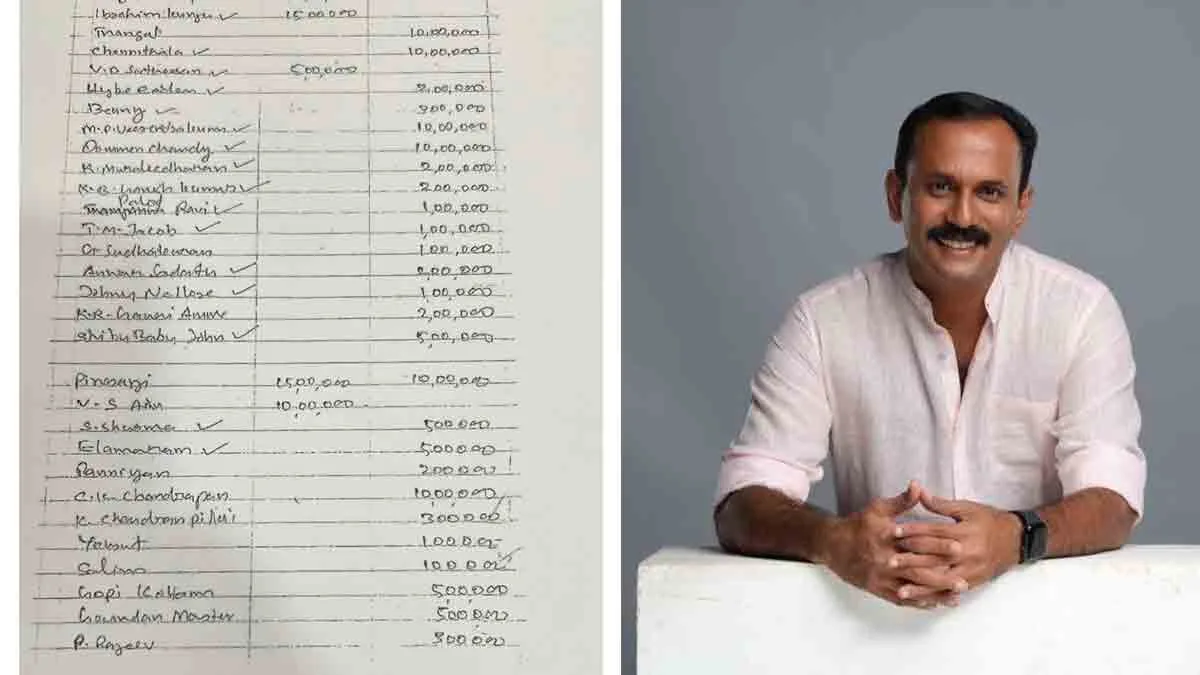 Ibrahim kunju 1500000
Thangal 10,00,000
Chennithala 10,00,000
V.D. Satheesan 500,000
Hybe Eden 2,00,000
Benny 300,000
M.P. Veerendrakumar 10,00,000
Oommen Chandy 10,00,000
K. Muraleedharan 2,00,000
K.B. Ganesh kumar 200,000
Palod
Ravi 1,00,000
T.M. Jacob 1,00,000
G. Sudhakaran 1,00,000
Anwar Sadath 2,00,000
Johny Nellore 1,00,000
K.R. Gowri Amma 2,00,000
Shibu Baby John 5,00,000
Pinarayi 1500,000 10,00,000
V.S 10,00,000
S. Sharma 500000
Elamaram 500000
Panniyan 200000
C.K. Chandrapan 1000000
K. Chandram pillai 300000
100000
Salim 100000
Gopi Kottamu 500000
Govindan Master 500000
P. Rajeev 300000